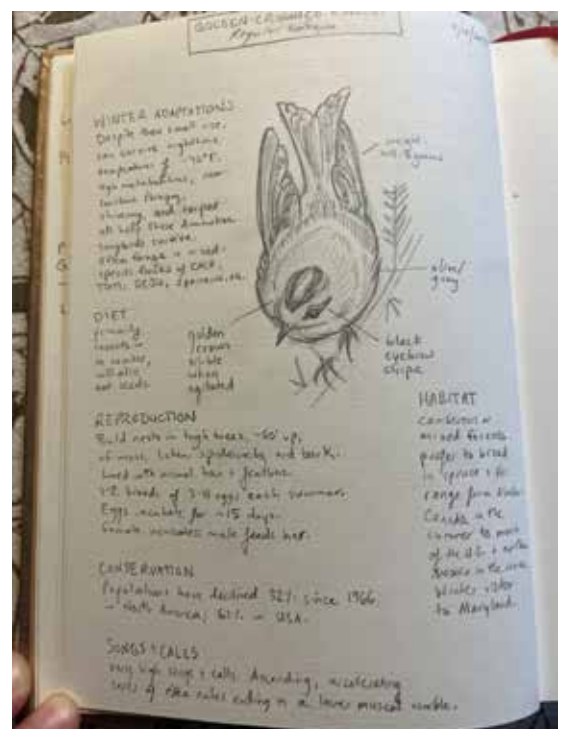 GOLDEN-CROWNED
Regulus
WINTER ADAPTATIONS
Despite their small size,
can survive nighttime
temperatures of -40°F.
high metabolisms,
constant foraging,
shivering, and torpor
all help these diminutive
songbirds survive.
often forage in mixed-
species flocks of CACH,
weight:
olive/
gray
black
eyebrow
stripe
golden
crown
visible
when
agitated
DIET
primarily
insects
in summer,
will also
eat seeds
REPRODUCTION
Build nests in high trees, ~60' up,
of moss, lichen, spiderwebs, and bark.
lined with animal hair + feathers.
1-2 broods of 3-11 eggs each summer.
Eggs incubate for ~15 days.
female incubates, male feeds her.
HABITAT
coniferous or
mixed forests.
prefer to breed
in spruce + fir
range from
Canada in the
summer to most
of the U.S. +
Mexico in the
Winter visitor
to Maryland.
CONSERVATION
Populations have declined 32% since 1966
in North America; 61% in USA.
SONGS + CALLS
very high songs + calls. Ascending, accelerating
series of notes ending in a lower musical warble.